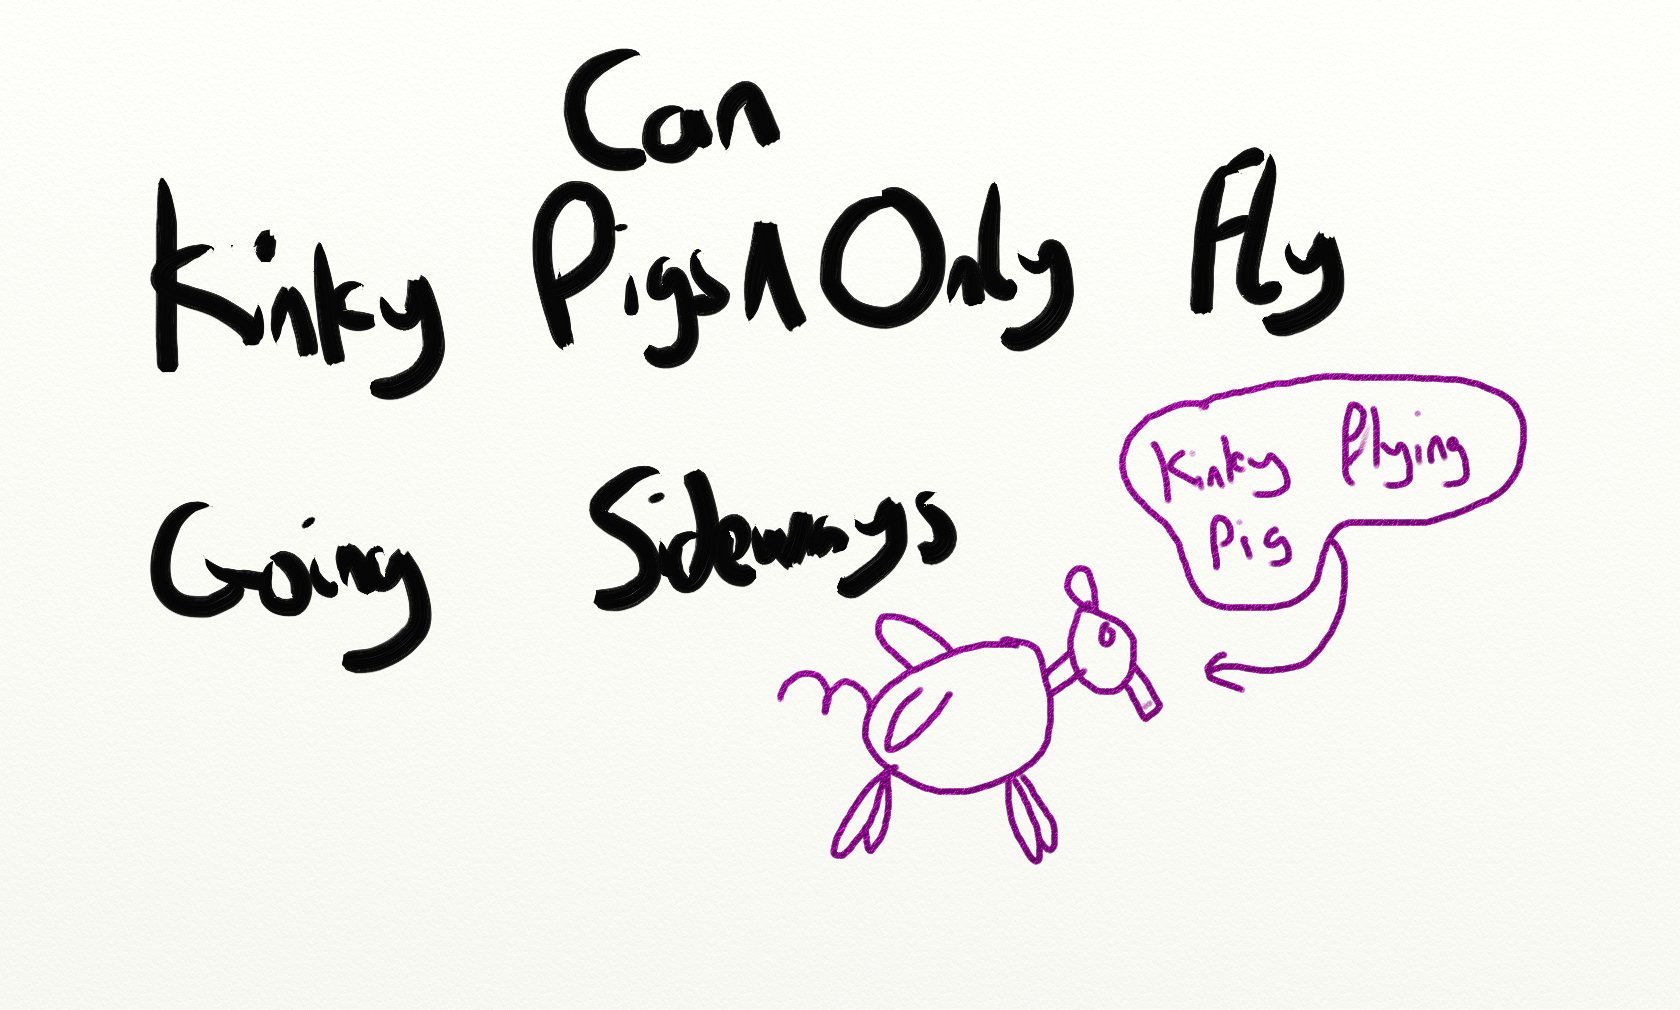 Kinky Pigs Can Only Fly
Going Sideways
Kinky Flying
Pig